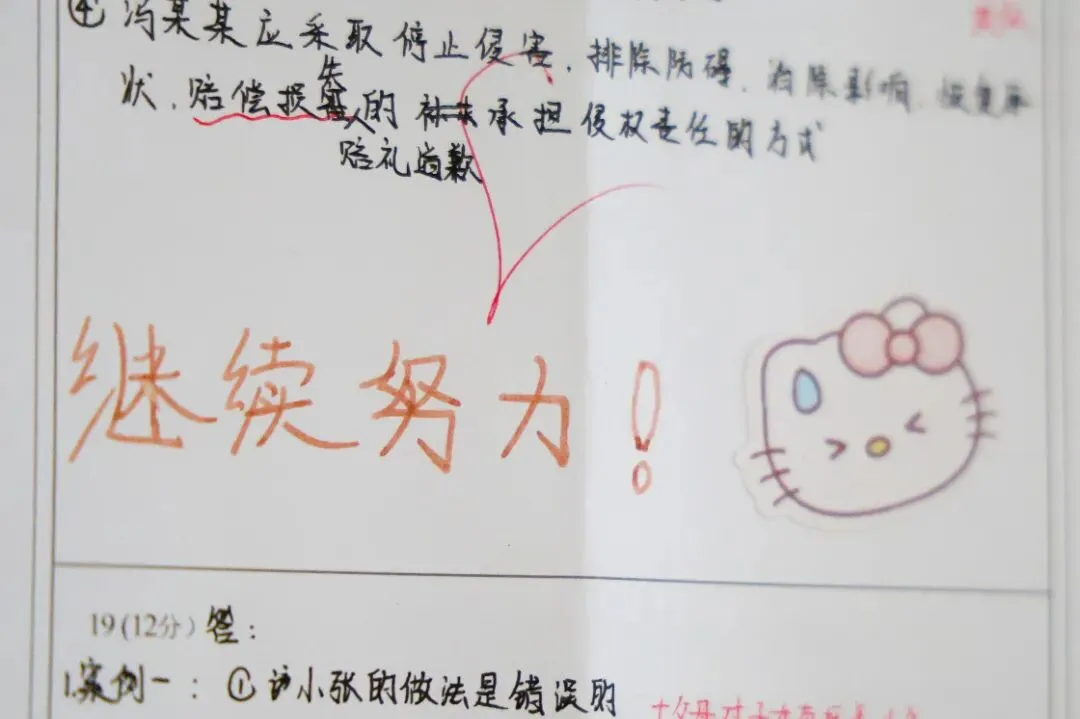 ④ 冯某某应采取停止侵害、排除防碍、消除影响、恢复原
状、赔偿损失的承担侵权责任的方式
赔礼道歉
继续努力!
19(12分)答:
1.案例一:①该小张的做法是错误的